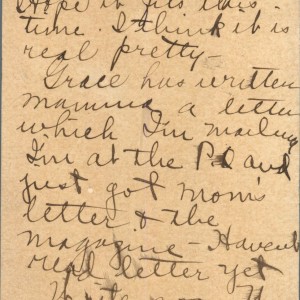 Hope it fits this
time. I think it is
real pretty.
Grace has written
mamma a letter
which I'm mailing
I'm at the P.O and
just got mom's
letter & the
magazine - Havent
read letter yet
Write